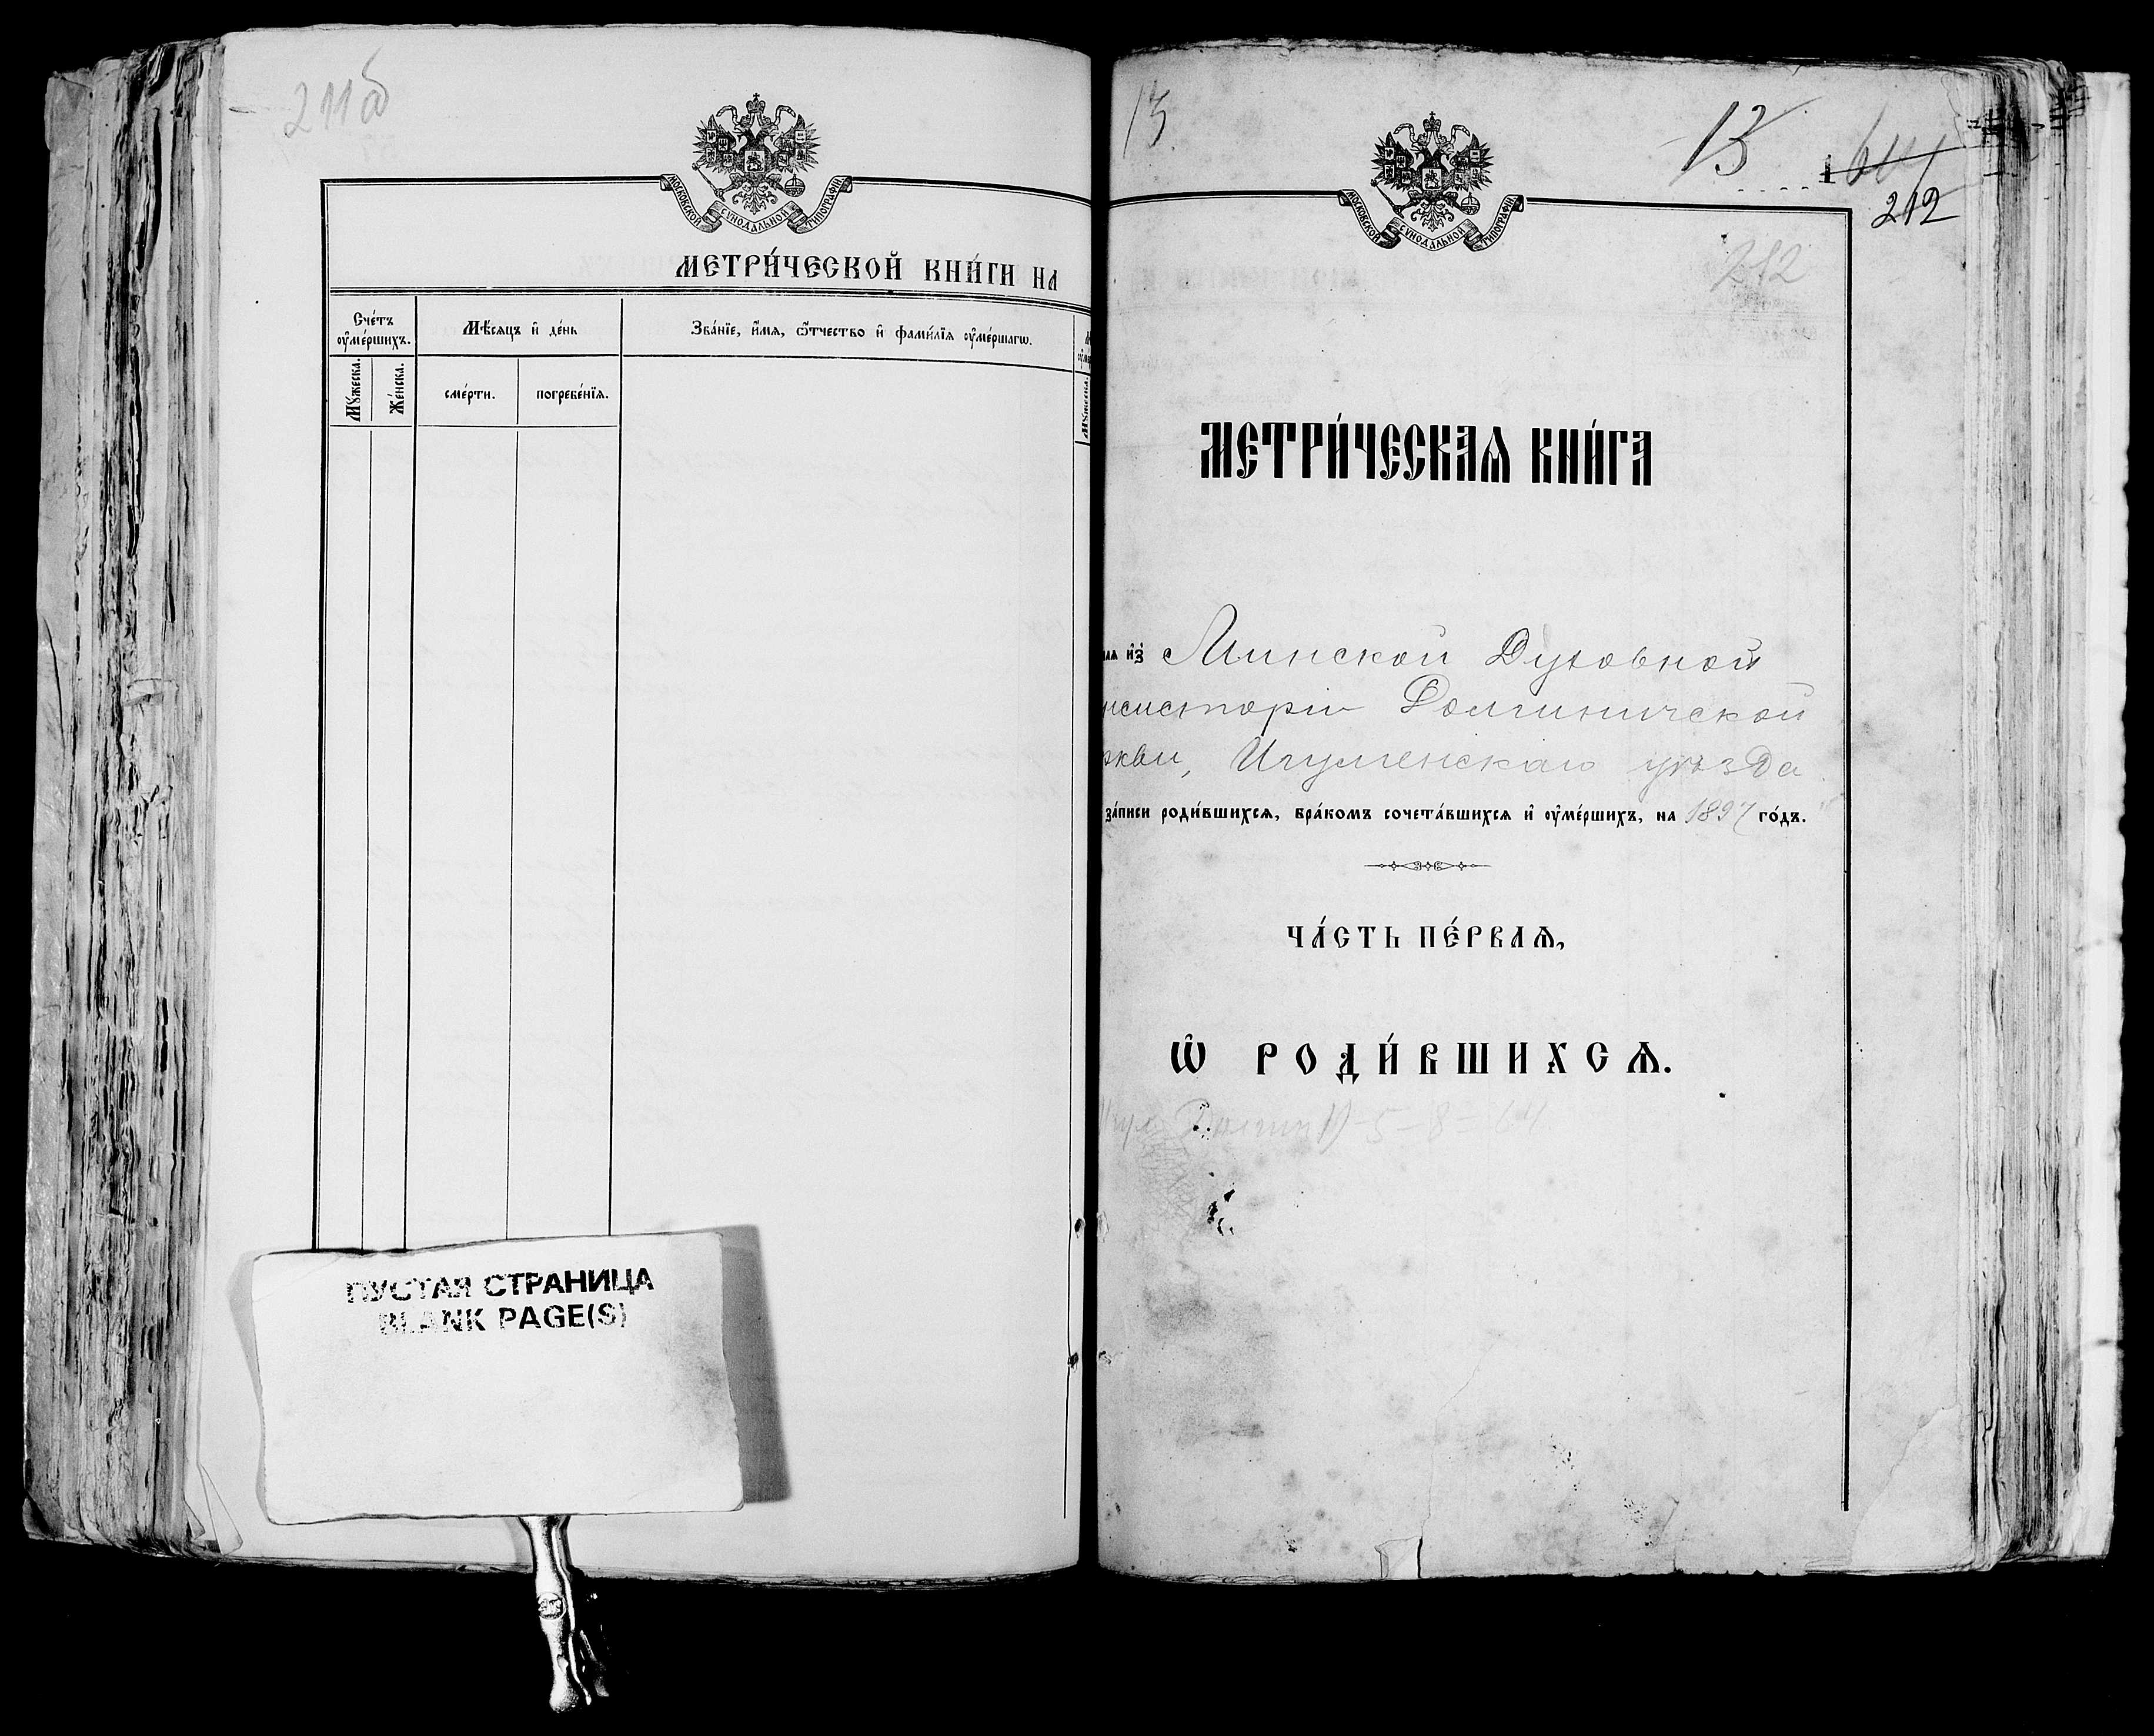 211б
МОСКОВСКОЙ СУНОДАЛЬНОЙ ТИПОГРАФІИ
МЕТРИ́ЧЕСКОЙ КНИ́ГИ НА
Сче́тъ ᲂу҆ме́ршихъ.
Мѣ́сяцъ и҆ де́нь
Зва́нїе, и҆́мѧ, ѻ҆́тчество и҆ фами́лїѧ ᲂу҆ме́ршагѡ.
Мꙋ́жеска.
Же́нска.
сме́рти.
погребе́нїѧ.
Мꙋ́жеска.
ПУСТАЯ СТРАНИЦА
BLANK PAGE(S)
13.
13
212
212
МОСКОВСКОЙ СУНОДАЛЬНОЙ ТИПОГРАФІИ
МЕТРИ́ЧЕСКАѦ КНИ́ГА
из̾ Минской Духовной
нсисторіи Долгиничской
ркви, Игуменскаго уѣзда
за́писи роди́вшихсѧ, бра́комъ сочета́вшихсѧ и҆ ᲂу҆ме́ршихъ, на 1897 го́дъ.
ЧА́СТЬ ПЕ́РВАѦ,
Ѡ҆ РОДИ́ВШИХСѦ.